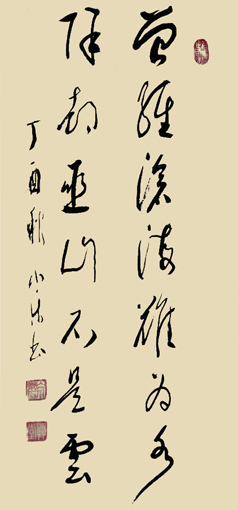 曾經滄海難為水
除却巫山不是雲
丁酉秋